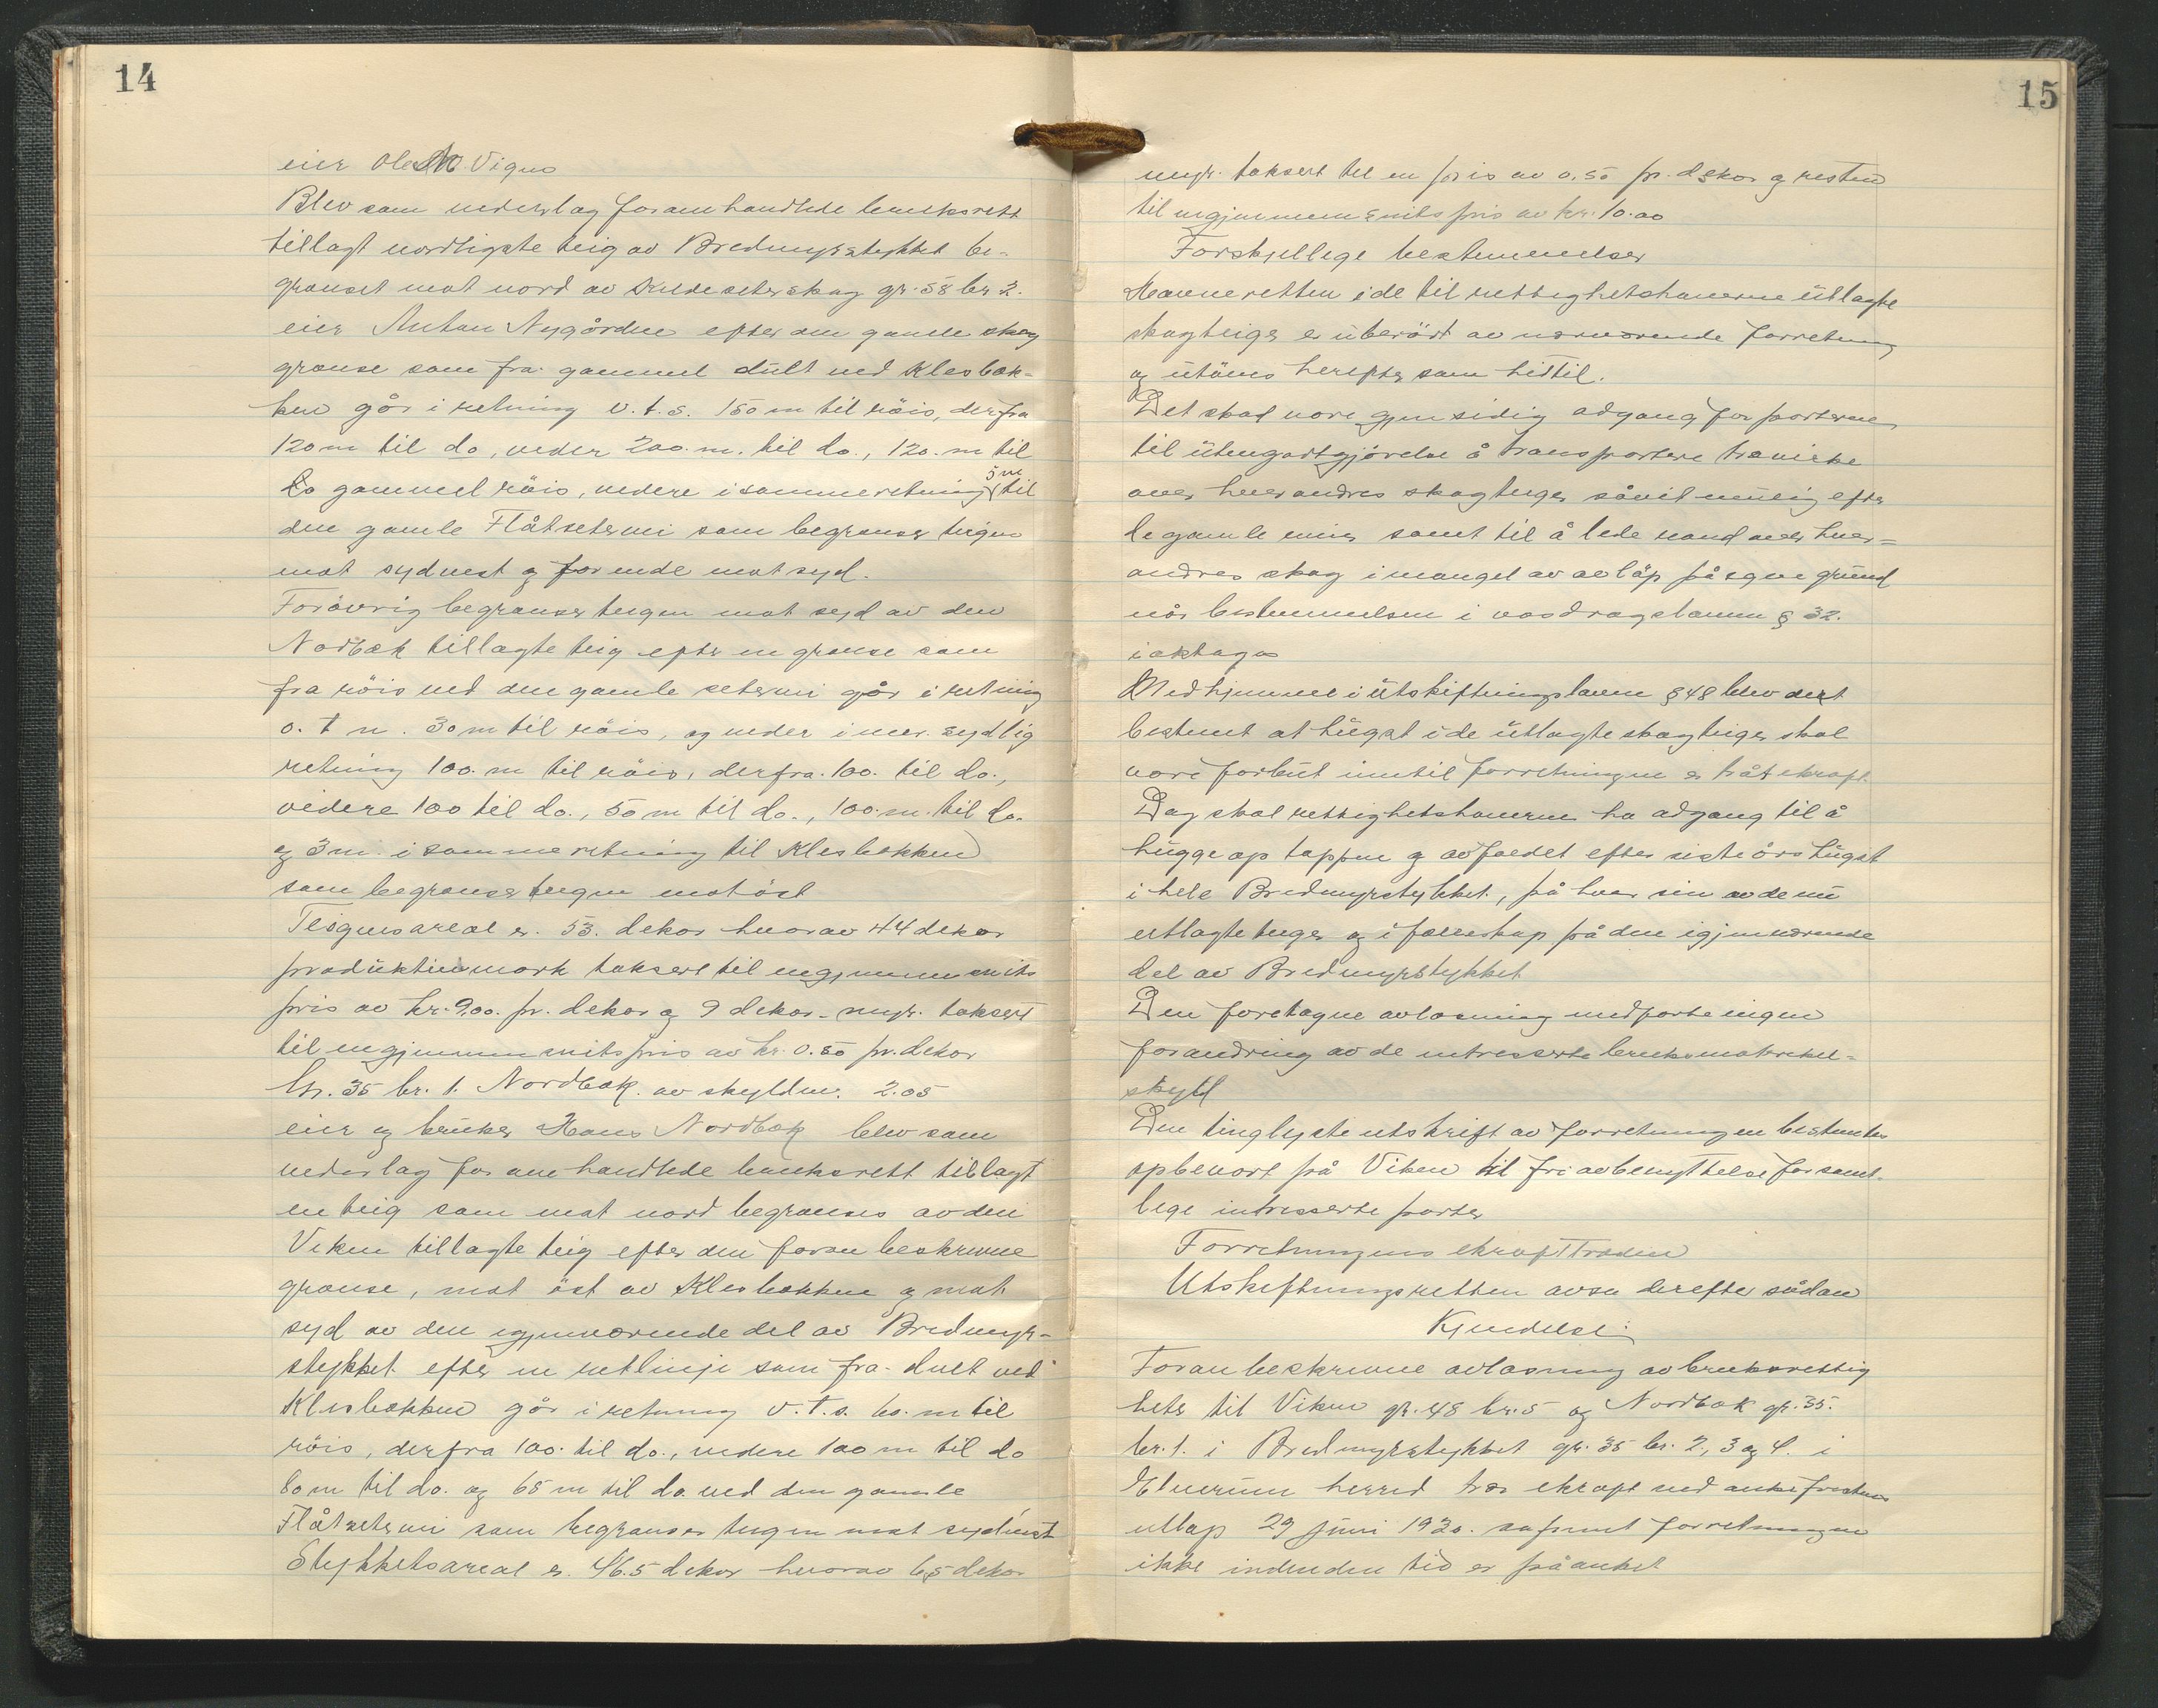 14
eier Ole M. Vigus
Blev som vederlag for omhandlede bruksrett
tillagt nordligste teig av Bredmyrstykket be-
grænset mot nord av Kildesæterskog gr. 58 br 2.
eier Anton Nygården efter den gamle skog
grænse som fra gammel dult ved Klesbæk-
ken går i retning v.t.s. 150 m til röis, derfra
120 m til do, videre 200 m. til do., 120. m til
do gammel röis, videre i samme retning 5 m til
den gamle Flåtsetervei som begrænser teigen
mot sydvest og for ende mot syd.
Forövrig begrænses teigen mot syd av den
Nordbæk tillagte teig efter en grænse som
fra röis ved den gamle setervei går i retning
o. t n. 30 m til röis, og videre i mer sydlig
retning 100. m til röis, derfra. 100. til do.,
videre 100 til do., 50 m til do., 100. m. til do.
og 3 m. i samme retning til Klesbækken
som begrænser teigen mot öst
Teigens areal er. 53. dekar hvorav 44 dekar
produktiv mark taksert til en gjennemsnits
pris av kr. 9,00. pr. dekar og 9 dekar myr. taksert
til en gjennemsnitspris av kr. 0.50 pr. dekar
Gr. 35 br. 1. Nordbæk. av skyldm. 2.05
eier og bruker Hans Nordbæk blev som
vederlag for omhandlede bruksrett tillagt
en teig som mot nord begrænses av den
Viken tillagte teig efter den foran beskrevne
grænse, mot öst av Klesbækken og mot
syd av den igjenværende del av Bredmyr-
stykket efter en retlinje som fra dult ved
Klesbækken går i retning v.t.s. 60. m til
röis, derfra 100. til do., videre 100 m til do
80 m til do. og 65 m til do. ved den gamle
Flåtsetervei som begrænser teigen mot sydvest
Stykkets areal er. 46.5 dekar hvorav 6,5 dekar
15
myr. taksert til en pris av 0.50 pr. dekar og resten
til en gjennemsnits pris av kr. 10.00
Forskjellige bestemmelser
Havneretten i de til rettighetshaverne utlagte
skogteiger er uberört av nærværende forretning
og utöves herefter som hittil.
Det skal være gjensidig adgang for parterne
til utengodtgjörelse å transportere trævirke
over hverandres skogteiger såvidt mulig efter
de gamle veier samt til å lede vand over hver-
andres skog i mangel av avlöp på egen grund
når bestemmelsen i vasdragsloven § 32.
iakttages
Med hjemmel i Utskiftningsloven § 48 blev det
bestemt at hugst i de utlagte skogteiger skal
være forbut inntil forretningen er trått i kraft.
Dog skal rettighetshaverne ha adgang til å
hugge op toppen og avfaldet efter siste års hugst
i hele Bredmyrstykket, på hver sin av de nu
utlagte teiger og i fælleskap på den igjenværende
del av Bredmyrstykket
Den foretagne avlösning medförte ingen
forandring av de intresserte bruks matrikel-
skyld
Den tinglyste utskrift av forretningen bestemtes
opbevart på Viken til fri avbenyttelse for samt-
lige intresserte parter
Forretningens ikrafttræden
Utskiftningsretten avsa derefter sådan
Kjendelse:
Foran beskrevne avlösning av bruksrettig
heter til Viken gr. 48 br. 5 og Nordbæk gr. 35.
br. 1. i Bredmyrstykket gr. 35 br. 2, 3 og 4. i
Elverum herred trær i kraft ved ankefristens
utlöp 29 juni 1930. såfremt forretningen
ikke inden den tid er påanket